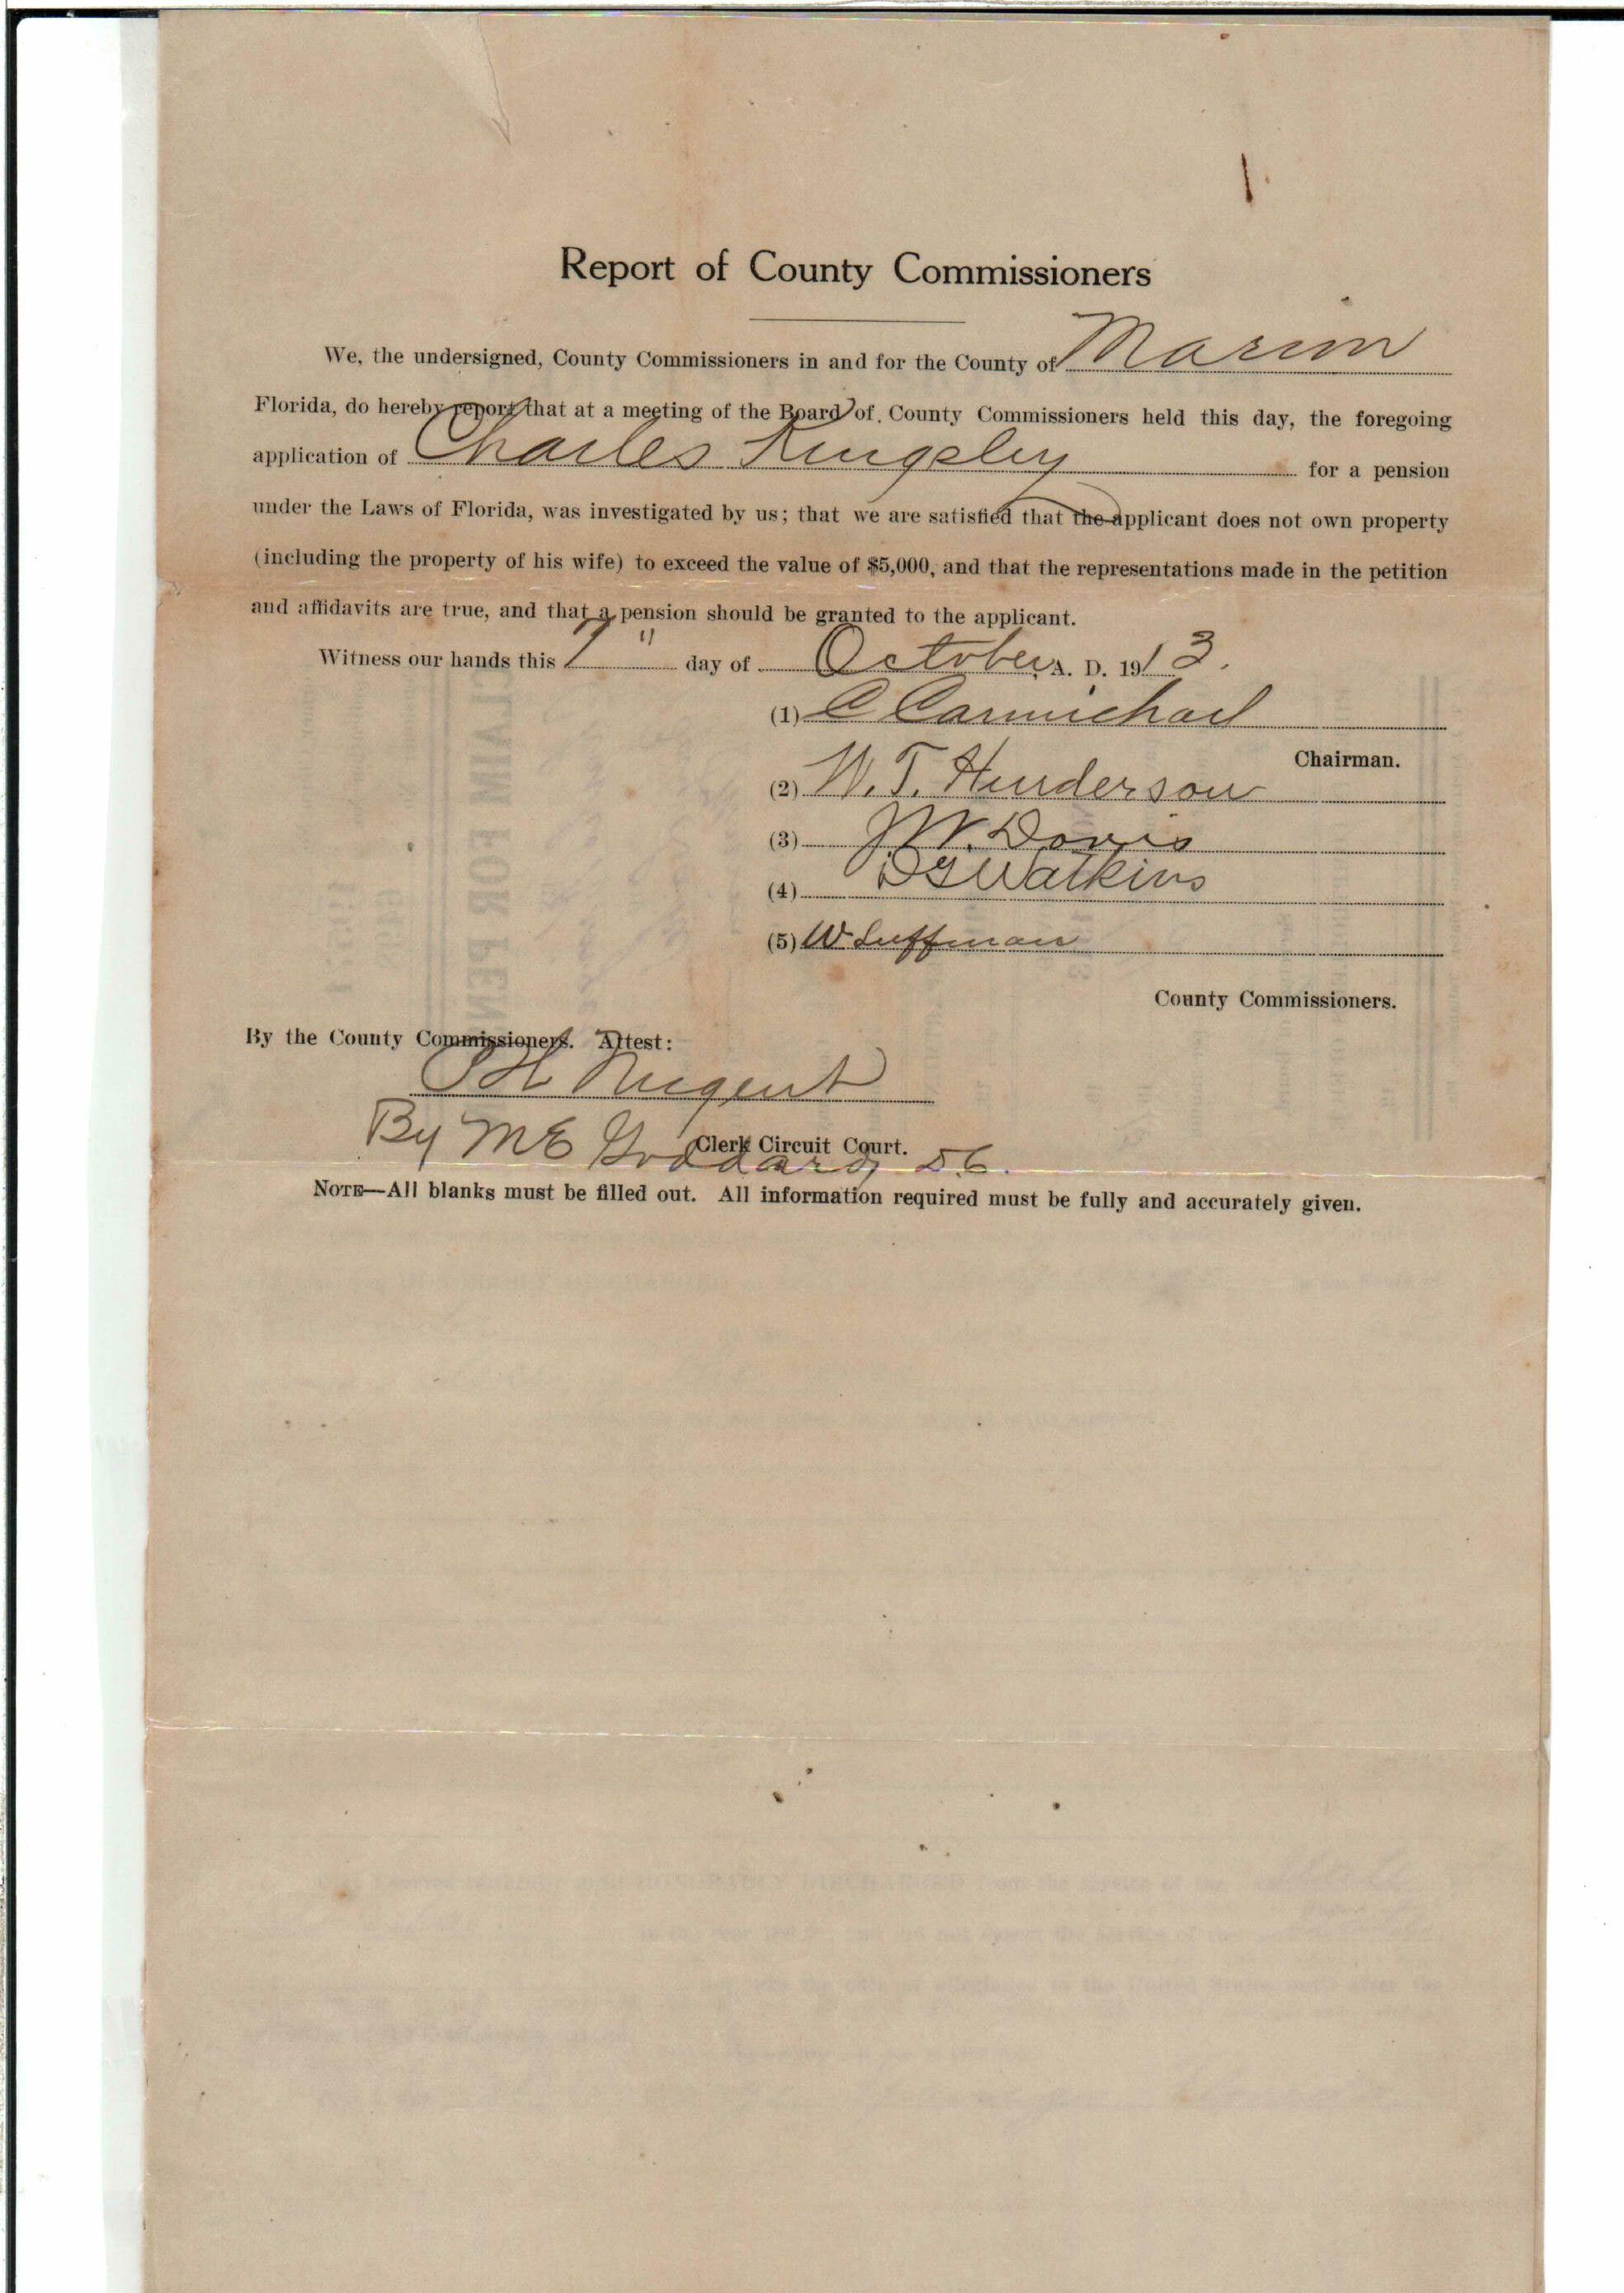 Report of County Commissioners
We, the undersigned, County Commissioners in and for the County of Marion
Florida, do hereby report that at a meeting of the Board of County Commissioners held this day, the foregoing
application of Charles Kingsley for a pension
under the Laws of Florida, was investigated by us; that we are satisfied that the applicant does not own property
(including the property of his wife) to exceed the value of $5,000, and that the representations made in the petition
and affidavits are true, and that a pension should be granted to the applicant.
Witness our hands this 7" day of October, A. D. 1913.
(1) C Carmichael
Chairman.
(2) W. T. Henderson
(3) J W. Davis
(4) D S Watkins
(5) W Luffman
County Commissioners.
By the County Commissioners. Attest:
S H Nugent
Clerk Circuit Court.
By M E Goddard, D.C.
NOTE—All blanks must be filled out. All information required must be fully and accurately given.